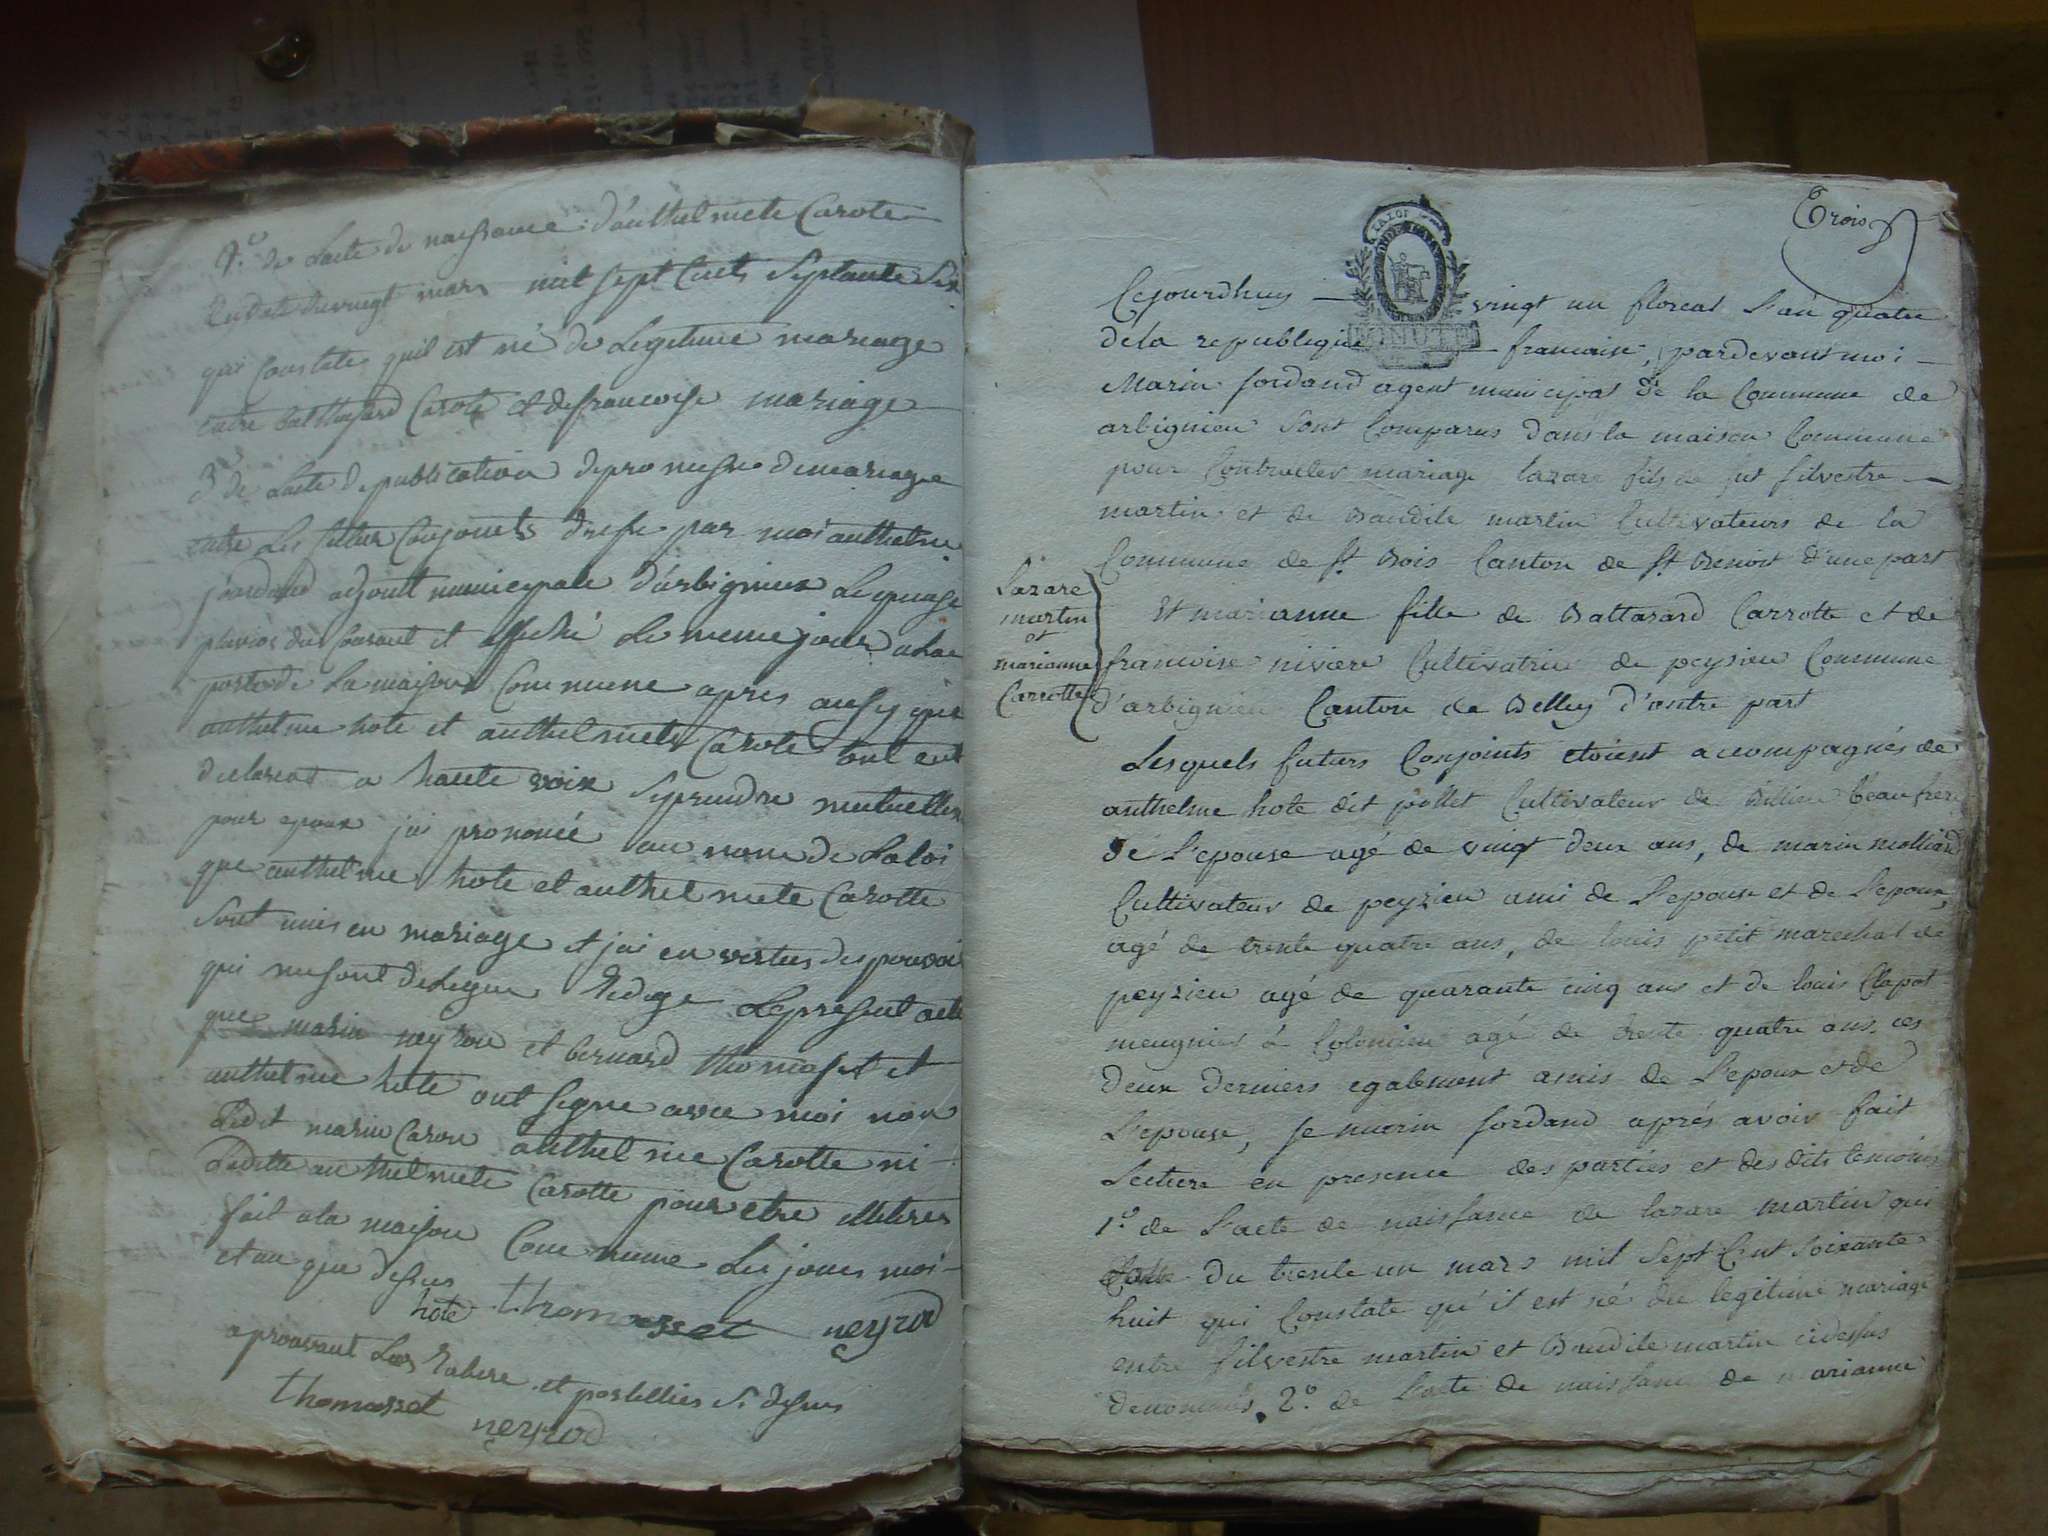 2.º de Lacte de naissance d'anthelmete Carote
Endate duvingt mars mil sept Cents Septante Six
qui Constate quil est né de Legitime mariage
entre balthazard Carote et defrancoise mariage
3º de Lacte de publication depromesse demariage
entre Les futur Conjoints dresse par moi anthelme
jourdand adjoint municipale d'arbignieu Lequinze
pluvios du Courant et affiché Le meme jour ala
porte de La maison Commune apres aussy que
anthelme hote et anthelmete Carote ont eut
declarent a haute voix Seprendre mutuellem
pour epoux jai prononcé au nom de Laloi
que anthelme hote et anthelmete Carotte
Sont unis en mariage et jai en vertus des pouvoir
qui mesont delegue Redige Lepresent acte
que marin neyrou et bernard thomasset et
anthelme hote ont Signe avec moi non
Ledit marin Caron anthelme Carotte ni-
Ladite anthelmete Carotte pour etre illitres
fait ala maison Commune Les jours moi-
et an que dessus
hote thomasset neyrod
aprouvant Les Rature et postilles Si dessus
thomasset
neyrod
Trois
Cejourdhuy vingt un floreal L'an quatre
dela republique francaise, pardevant moi
Marin Jordand agent municipal de la Commune de
arbignieu Sont Comparus dans la maison Commune
pour Contracter mariage lazare fils de fut Silvestre
martin et de Baudile martin Cultivateurs de la
Commune de St. Bois Canton de St. Benoit d'une part
Lazare
martin
et
marianne
Carrotte
Et marianne fille de Baltazard Carrotte et de
francoise niviere Cultivatrice de peyzieu Commune
d'arbignieu Canton de Belley d'autre part
Lesquels futurs Conjoints etoient accompagnés de
anthelme hote dit pollet Cultivateur de Billieu beaufrere
de L'epouse agé de vingt deux ans, de marin molliard
Cultivateur de peyzieu ami de L'epouse et de L'epoux,
agé de trente quatre ans, de louis petit marechal de
peyzieu agé de quarante cinq ans et de louis Clapot
meugnier à Colomieu agé de trente quatre ans, ces
deux derniers egalement amis de L'epoux et de
L'epouse, Je marin Jordand aprés avoir fait
Lecture en presence des parties et des dits temoins
1.º de L'acte de naissance de lazare martin qui
du trente un mars mil Sept Cent Soixante
huit qui Constate qu'il est né du legitime mariage
entre Silvestre martin et Baudile martin cidessus
denommés, 2.º de L'acte de naissance de marianne